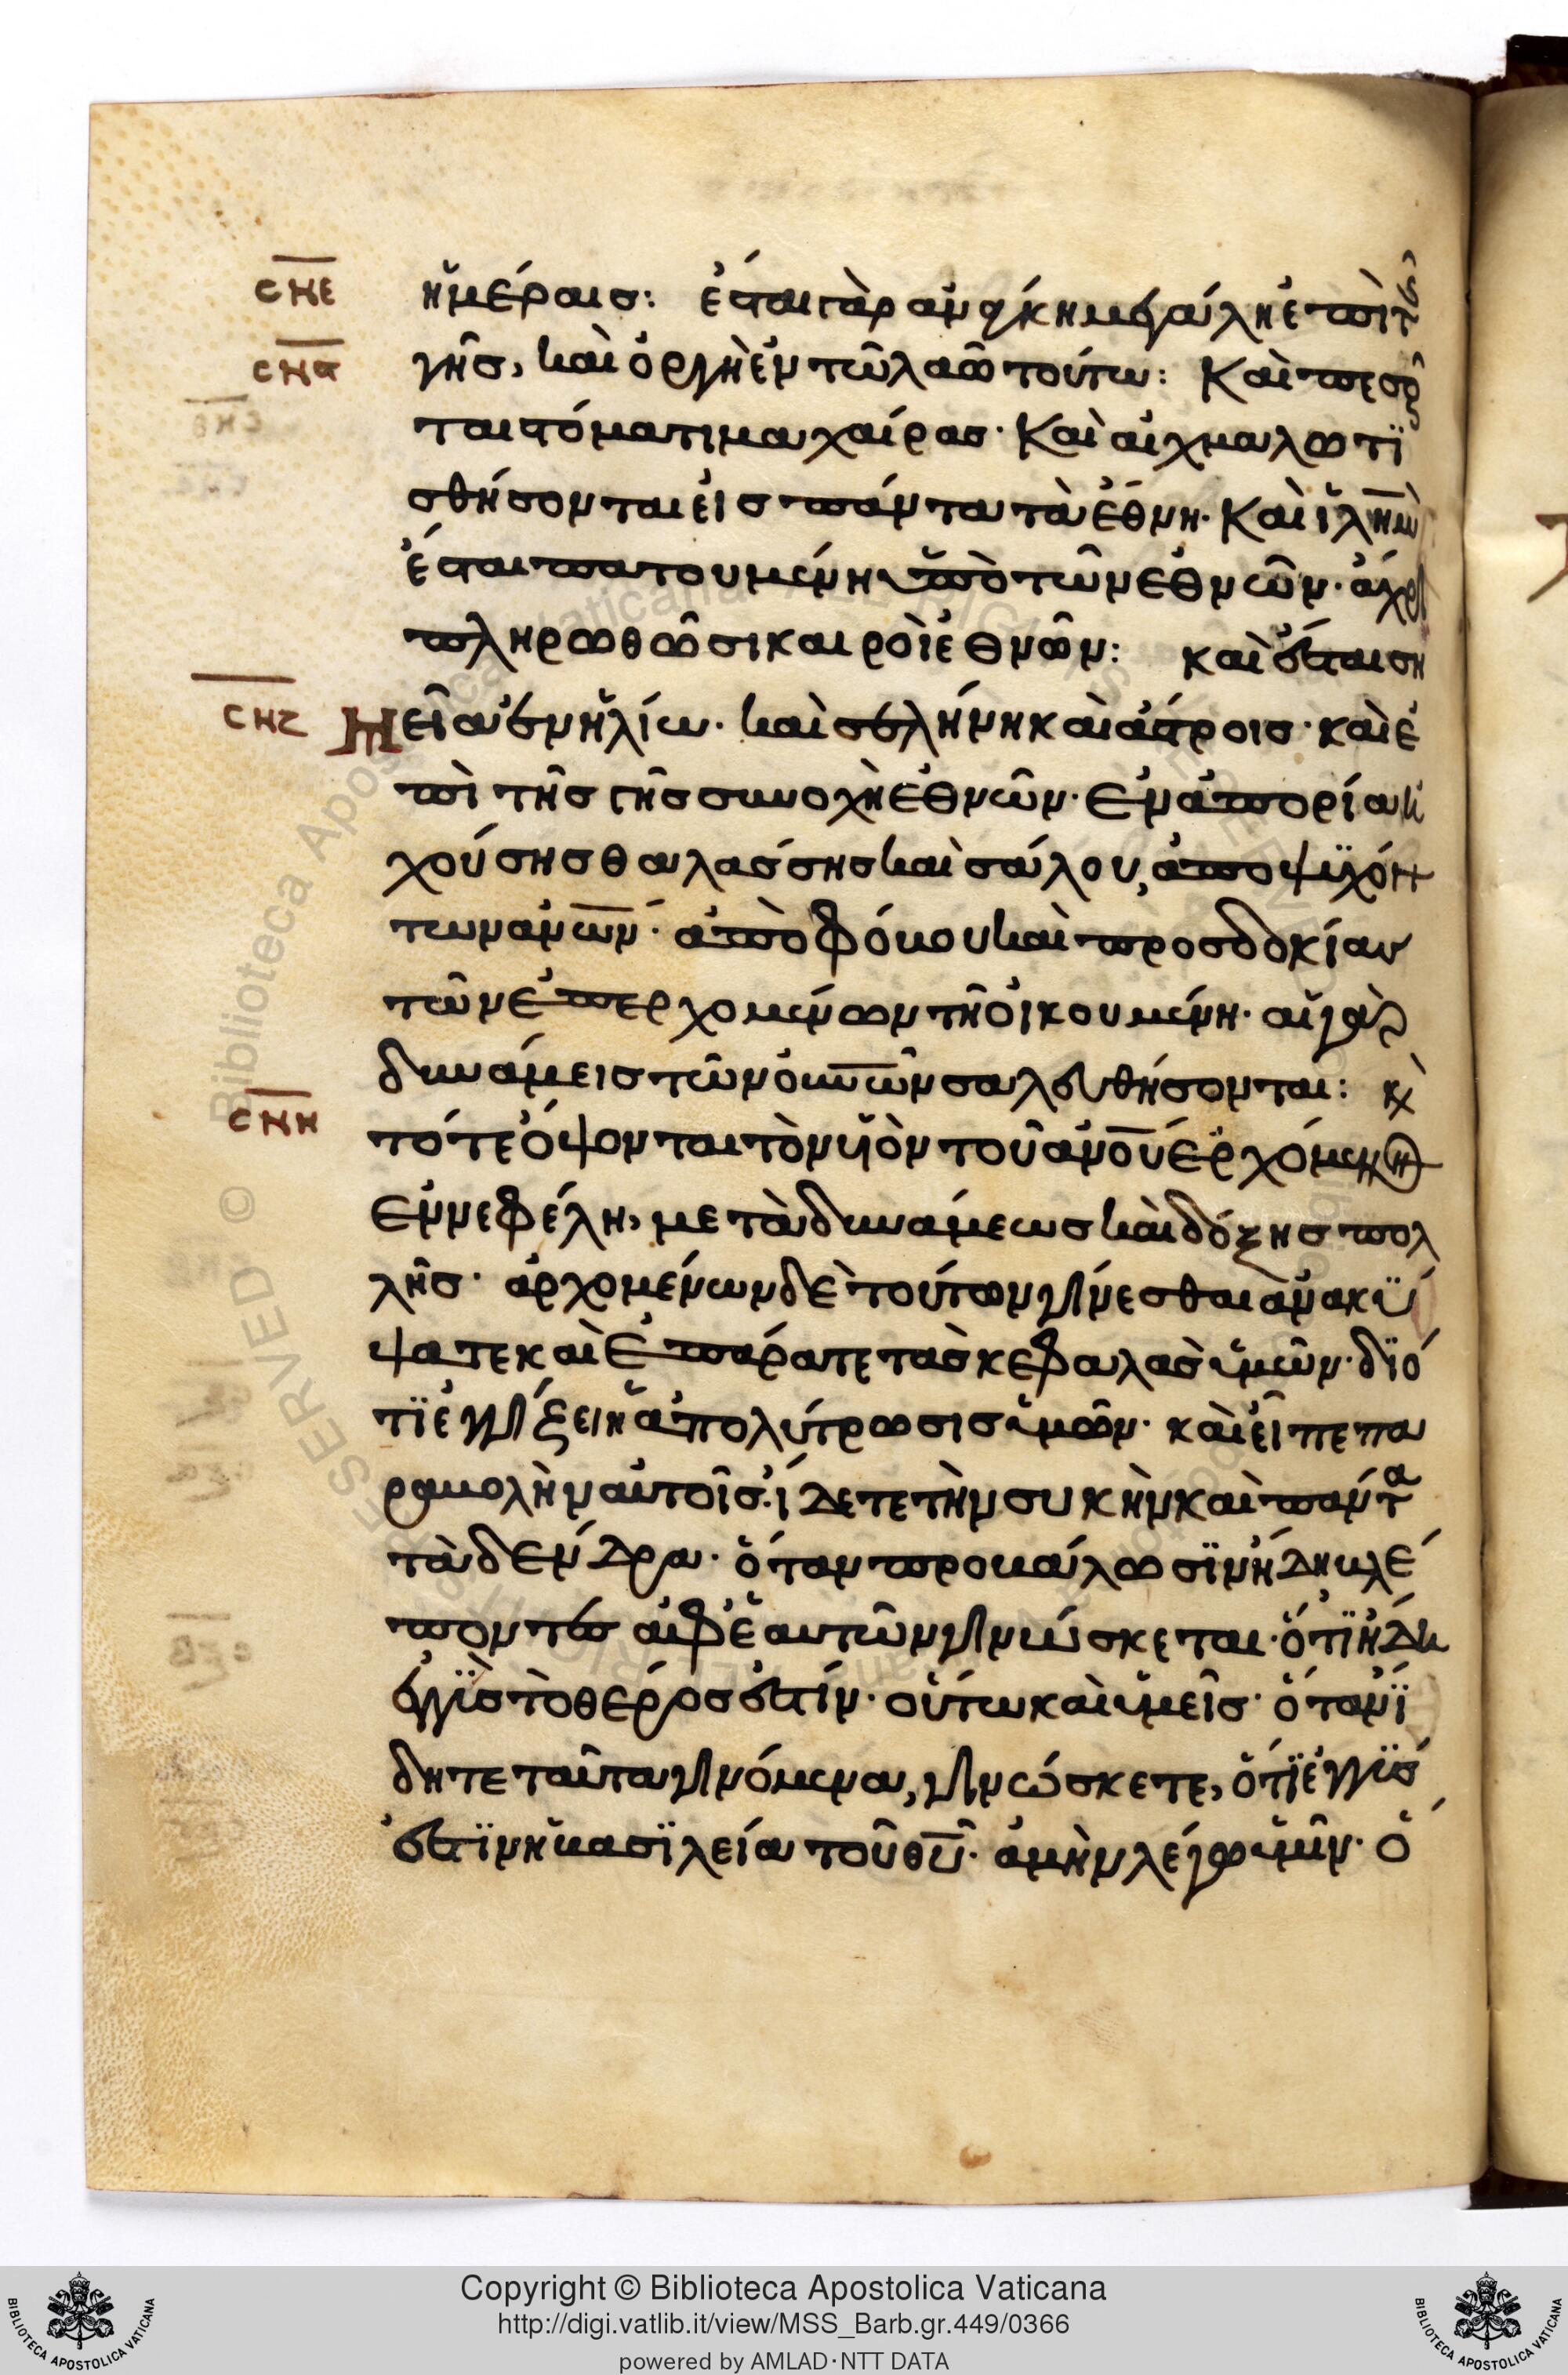 σκε ἡμέραις: ἔσται γὰρ ἀνάγκη μεγάλη ἐπὶ τῆς
σκϛ γῆς, καὶ ὀργὴ ἐν τῶ λαῶ τούτω: Καὶ πεσοῦν
ται στόματι μαχαίρας· Καὶ αἰχμαλωτϊ
σθήσονται εἰς πάντα τὰ ἔθνη· Καὶ ϊλημ
ἔσται πατουμένη ὑπὸ τῶν ἐθνῶν· ἄχρι
πληρωθῶσι καιροὶ ἐθνῶν: καὶ ἔσται ση
σκζ μεῖα ἐν ἡλίω· καὶ σελήνη καὶ ἄστροις· καὶ ἐ
πὶ τῆς γῆς συνοχὴ ἐθνῶν· ἐν ἀπορία ἠ
χούσης θαλάσσης καὶ σάλου, ἀποψυχόν
των ἀνων· ἀπὸ φόβου καὶ προσδοκίας
τῶν ἐπερχομένων τῆ οἰκουμένη· αἱ γὰρ
δυνάμεις τῶν οὐνων σαλευθήσονται: κὶ
σκη τότε ὄψονται τὸν υἱὸν τοῦ ἀνου ἐρχόμενον
ἐν νεφέλη, μετὰ δυνάμεως καὶ δόξης πολ
λῆς· ἀρχομένων δὲ τούτων γίνεσθαι ἀνακύ
ψατε καὶ ἐπάρατε τὰς κεφαλὰς ὑμῶν· διό
τϊ ἐγγίζει ἡ ἀπολύτρωσις ὑμῶν· καὶ εἶπε πα
ραβολὴν αὐτοῖς· ἴδετε τὴν συκὴν καὶ πάντα
τὰ δένδρα· ὅταν προβάλωσϊν ἤδη βλέ
ποντες ἀφ ἑαυτῶν γινώσκεται· ὅτϊ ἤδη
ἐγγὺς τὸ θέρος ἐστίν· οὕτω καὶ ὑμεῖς· ὅταν ϊ
δητε ταῦτα γινόμενα, γινώσκετε, ὅτϊ ἐγγύς
ἐστϊν ἡ βασϊλεία τοῦ θυ· ἀμὴν λέγω ὑμῖν· ὅ
Copyright © Biblioteca Apostolica Vaticana
http://digi.vatlib.it/view/MSS_Barb.gr.449/0366
powered by AMLAD·NTT DATA